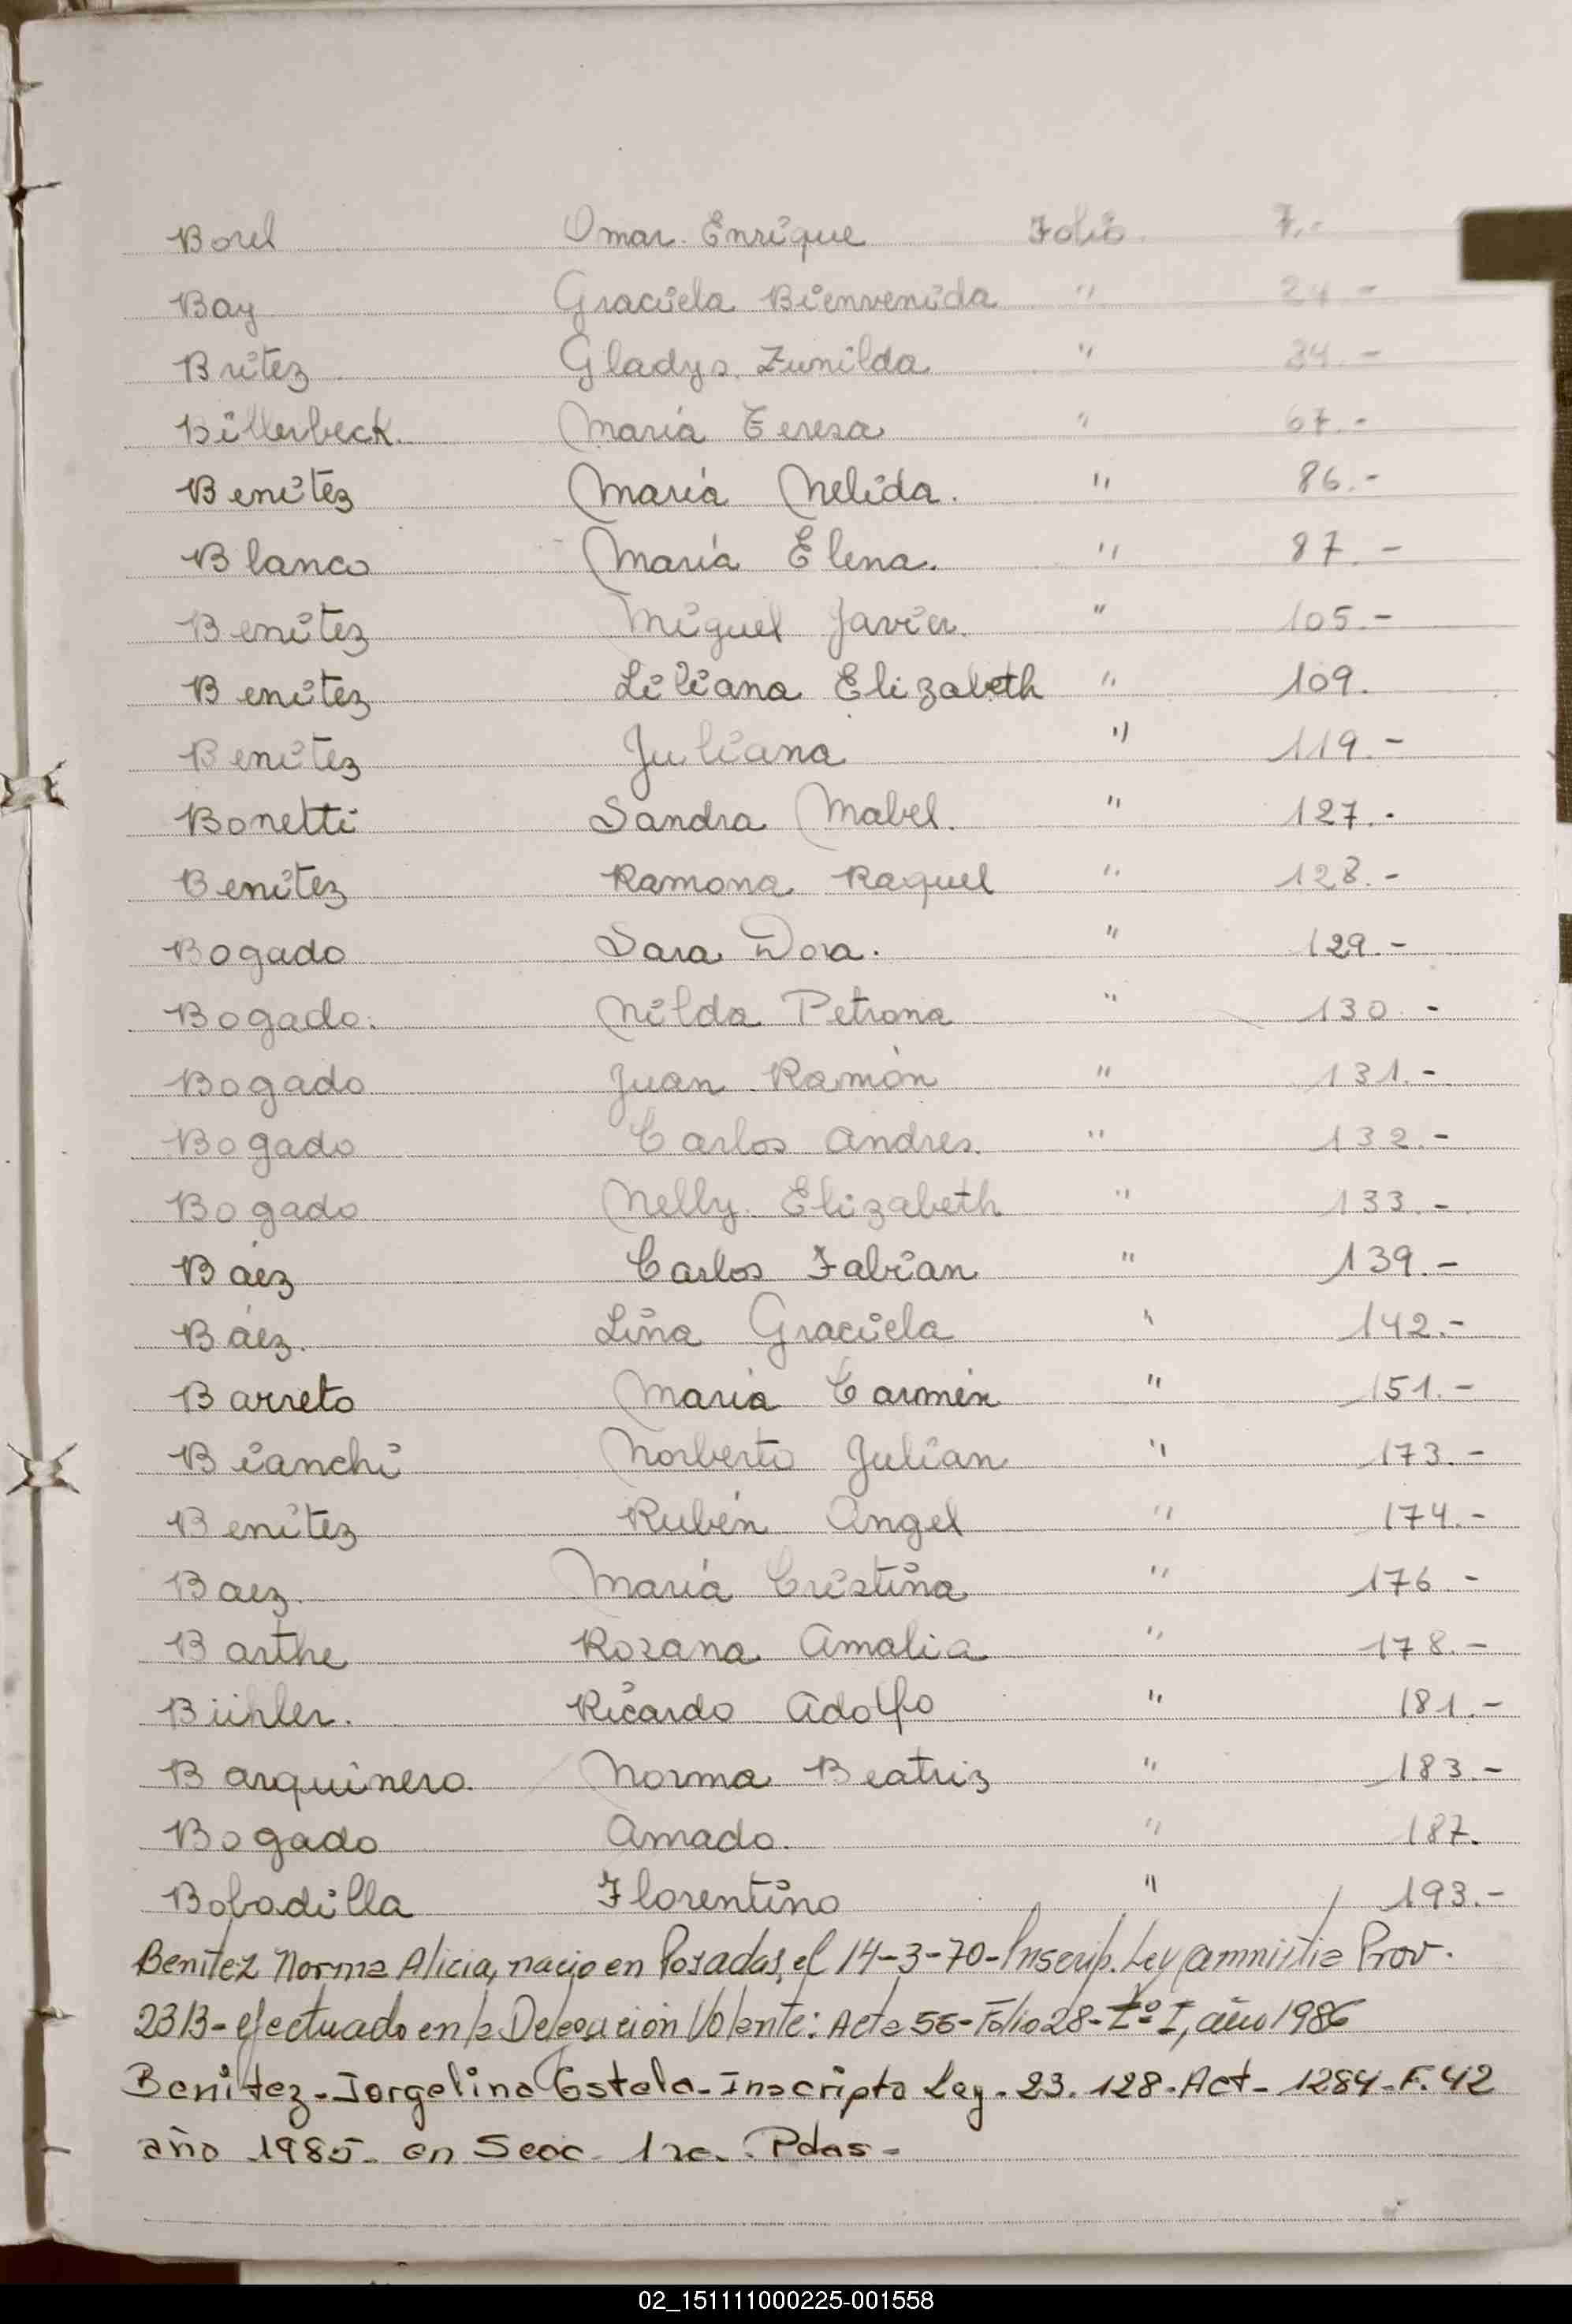 Borel Omar Enrique Folio 7.-
Bay Graciela Bienvenida " 24 -
Britez Gladys Zunilda " 34.-
Billerbeck María Teresa " 67.-
Benítez María Nelida. " 86.-
Blanco María Elena. " 87.-
Benítez Miguel Javier. " 105.-
Benítez Liliana Elizabeth " 109.
Benítez Juliana " 119.-
Bonetti Sandra Mabel. " 127.-
Benítez Ramona Raquel " 128.-
Bogado Sara Dora. " 129.-
Bogado. Nilda Petrona " 130.-
Bogado Juan Ramón " 131.-
Bogado Carlos Andres. " 132.-
Bogado Nelly Elizabeth " 133.-
Báez Carlos Fabian " 139.-
Báez. Lina Graciela " 142.-
Barreto María Carmen " 151.-
Bianchi Norberto Julian " 173.-
Benitez Rubén Angel " 174.-
Baez. María Cristina " 176 -
Barthe Rosana Amalia " 178.-
Bühler. Ricardo Adolfo " 181.-
Barquinero. Norma Beatriz " 183.-
Bogado Amado. " 187.
Bobadilla Florentino " 193.-
Benitez Norma Alicia, nacio en Posadas, el 14-3-70-Inscrip. Ley amnistia Prov.
2313-efectuado en la Delegación Volante: Acta 55-Folio 28-Tº I, año 1986
Benitez-Jorgelina Estela-Inscripta Ley-23.128-Act-1284-F.42
año 1985-en Secc. 1ra. Pdas-
02_151111000225-001558